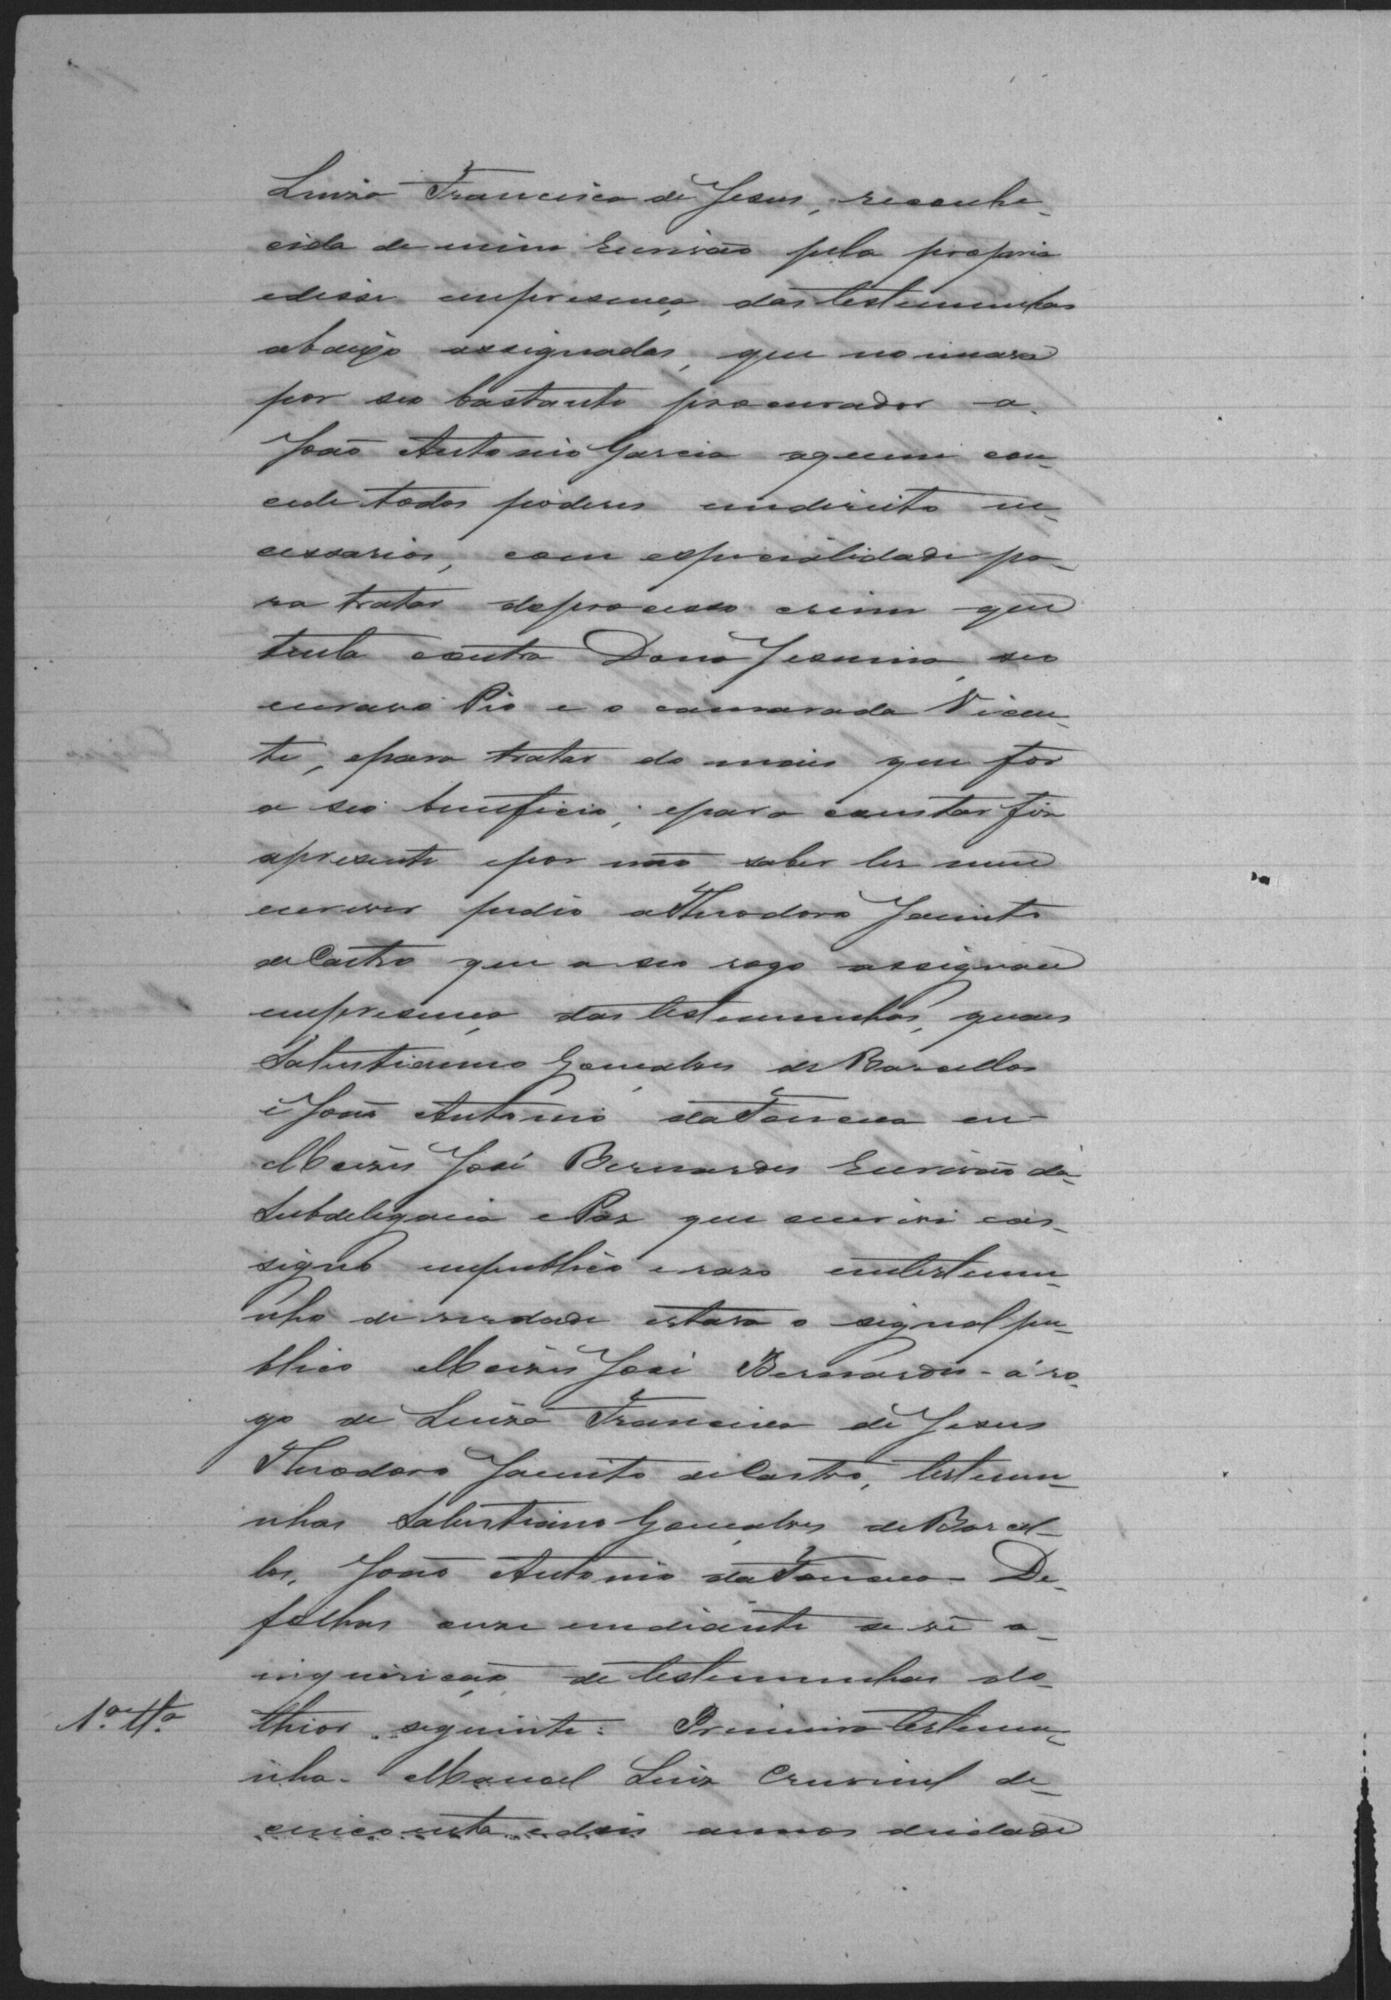 Luiza Francisca de Jesus, reconhe-
cida de mim Escrivão pela propria
edisse empresença das testemunhas
abaixo assignadas, que nomeava
por seo bastante procurador a
João Antonio Garcia aquem con-
cede todos poderes emdireito ne-
cessarios, com especialidade pa-
ra tratar deprocesso crime que
tenta contra Dona Jesuina, seo
escravo Pio e o camarada Vicen-
te, epara tratar do mais que for
a seo beneficio; epara constar fiz
apresente epor não saber ler nem
escrever pedio a Theodoro Jacinto
de Castro que a seo rogo assignace
empresença das testemunhas, quaes
Salustianno Gonçalves de Barcellos
e João Antonio da Fonceca eu
Moizes José Bernardes Escrivão da
Subdelegacia e Paz que escrevi eas-
signo empublico e raso emtestemu-
nho de verdade estava o signal pu-
blico Moizes José Bernardes - á ro-
go de Luiza Francisca de Jesus
Theodoro Jacinto de Castro, testemu-
nhas Salustiano Gonçalves de Barcel-
los, João Antonio da Fonceca - De
folhas onze emdiante se vê a
inquirição de testemunhas do
theor seguinte: Primeira testemu-
1.ª tt.ª
nha - Manoel Luiz Cruvinel de
cincoenta e dois annos deidade